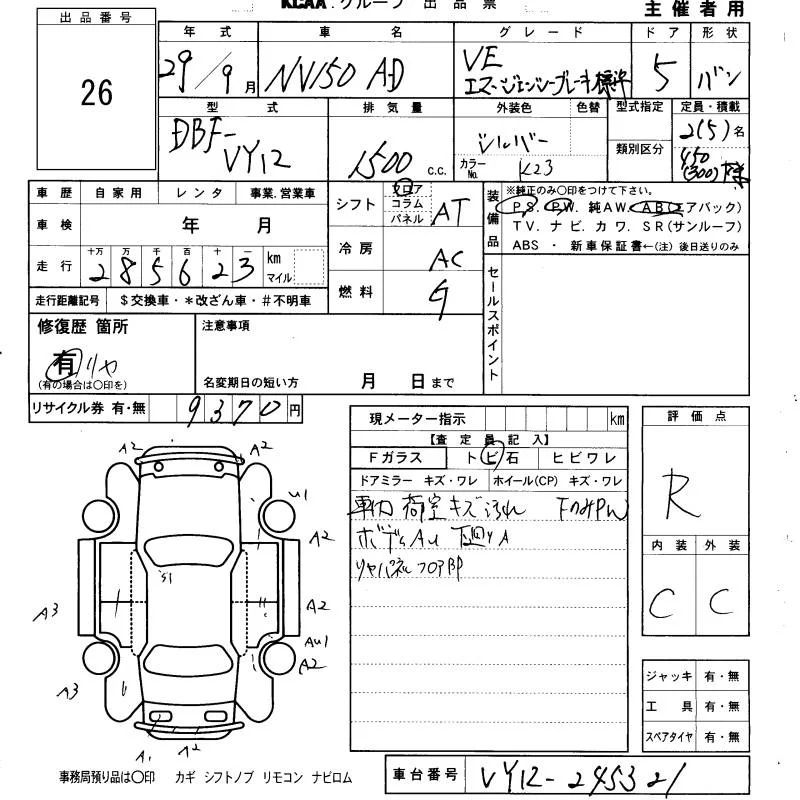 KCAA.グループ 出品票
主催者用
出品番号
26
年式 車名 グレード ドア 形状
29/9月 NV150 AD VE 5 バン
エマージェンシーブレーキ標準
型式 排気量 外装色 色替 型式指定 定員・積載
DBF-VY12 1500 c.c. シルバー 類別区分 2(5)名
カラーNo. K23 450(300)
車歴 自家用 レンタ 事業.営業車
車検 年 月
走行 十万 万 千 百 十 一 km マイル
2 8 5 6 2 3
走行距離記号 $交換車・*改ざん車・#不明車
シフト フロア コラム パネル AT
冷房 AC
燃料 G
装備品
※純正のみ○印をつけて下さい。
P.S. P.W. 純AW. A.B(エアバック)
TV. ナビ. カワ. SR(サンルーフ)
ABS ・ 新車保証書←(注) 後日送りのみ
セールスポイント
修復歴 箇所
有 リヤ
(有の場合は○印を)
注意事項
名変期日の短い方 月 日まで
リサイクル券 有・無 9370円
現メーター指示 km
【査定員記入】
Fガラス トビ石 ヒビワレ
ドアミラー キズ・ワレ ホイール(CP) キズ・ワレ
車内 荷室キズ汚れ FのみPW
ボディAU 下回りA
リヤパネル フロアBP
評価点
R
内装 外装
C C
ジャッキ 有・無
工具 有・無
スペアタイヤ 有・無
A2 A2
U1
A2
S1
A3 A2
AU1
A2
A3
A1 A2
事務局預り品は○印 カギ シフトノブ リモコン ナビロム
車台番号 VY12-245321